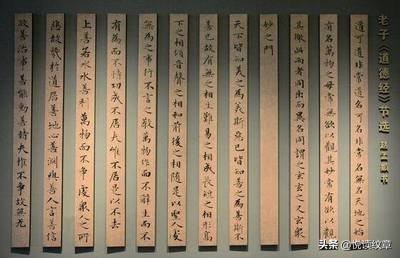 老子《道德经》节选
赵孟頫书
道可道非常道名可名非常名無名天地之始
有名萬物之母常無欲以觀其妙常有欲以觀
其徼此兩者同出而異名同謂之玄玄之又玄衆
妙之門
天下皆知美之為美斯惡已皆知善之為善斯不
善已故有無之相生難易之相成長短之相形高
下之相傾音聲之相和前後之相隨是以聖人處
無為之事行不言之教萬物作而不辭生而不
有為而不恃功成不居夫惟不居是以不去
上善若水水善利萬物而不爭處衆人之所
惡故幾於道居善地心善淵與善人言善信
政善治事善能動善時夫惟不爭故無尤
头条 @悦读纹章